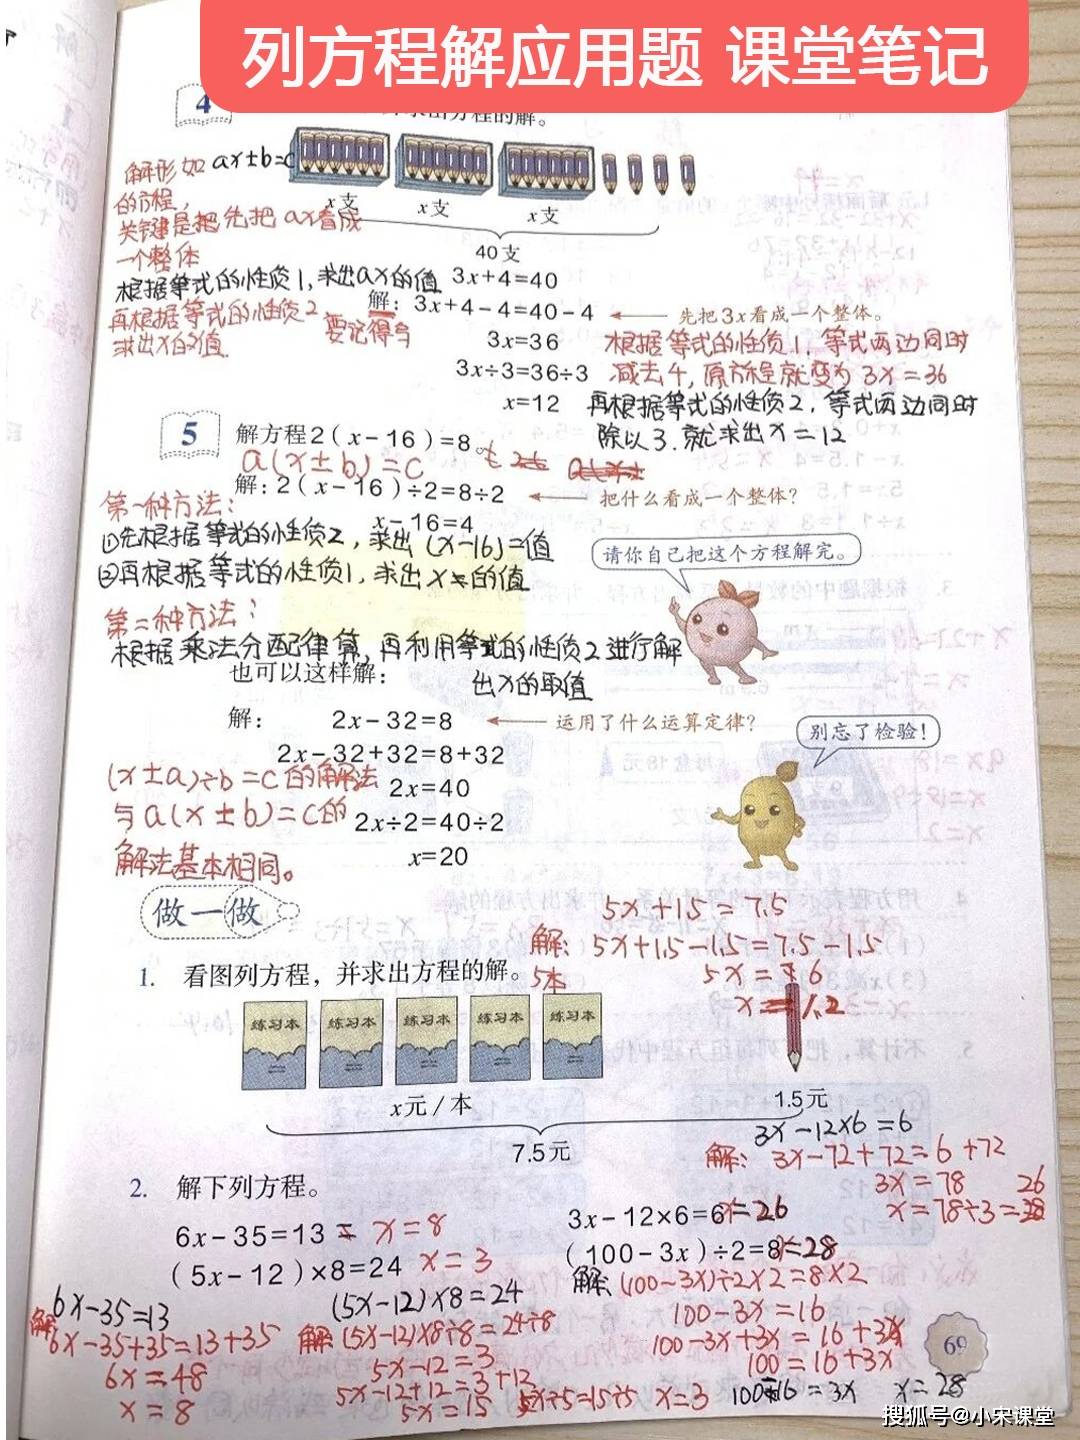 列方程解应用题 课堂笔记
4
求出方程的解。
解形如ax±b=c
的方程，
关键是把先把ax看成
一个整体
x支
x支
x支
40支
根据等式的性质1，求出ax的值
3x+4=40
再根据等式的性质2
求出x的值
要记得写
解：3x+4-4=40-4
先把3x看成一个整体。
3x=36
3x÷3=36÷3
x=12
根据等式的性质1，等式两边同时
减去4，原方程就变为3x=36
再根据等式的性质2，等式两边同时
除以3.就求出x=12
5
解方程2(x-16)=8。
a(x±b)=c
解：2(x-16)÷2=8÷2
把什么看成一个整体？
第一种方法：
x-16=4
①先根据等式的性质2，求出(x-16)=值
②再根据等式的性质1，求出x的值
请你自己把这个方程解完。
第二种方法：
根据乘法分配律算，再利用等式的性质2进行解
出x的取值
也可以这样解：
解：
2x-32=8
运用了什么运算定律？
别忘了检验！
2x-32+32=8+32
2x=40
2x÷2=40÷2
x=20
(x±a)÷b=c的解法
与a(x±b)=c的
解法基本相同。
做一做
5x+1.5=7.5
解：5x+1.5-1.5=7.5-1.5
5x=6
x=1.2
1. 看图列方程，并求出方程的解。
5本
练习本
练习本
练习本
练习本
练习本
x元/本
1.5元
7.5元
3x-12×6=6
解：3x-72+72=6+72
3x=78
26
x=78÷3=
2. 解下列方程。
6x-35=13
x=8
3x-12×6=6
x=26
(5x-12)×8=24
x=3
(100-3x)÷2=8
x=28
6x-35=13
解：
6x-35+35=13+35
6x=48
x=8
(5x-12)×8=24
解：(5x-12)×8÷8=24÷8
5x-12=3
5x-12+12=3+12
5x=15
5x÷5=15÷5
x=3
解：(100-3x)÷2×2=8×2
100-3x=16
100-3x+3x=16+3x
100=16+3x
100-16=3x
x=28
69
搜狐号@小宋课堂